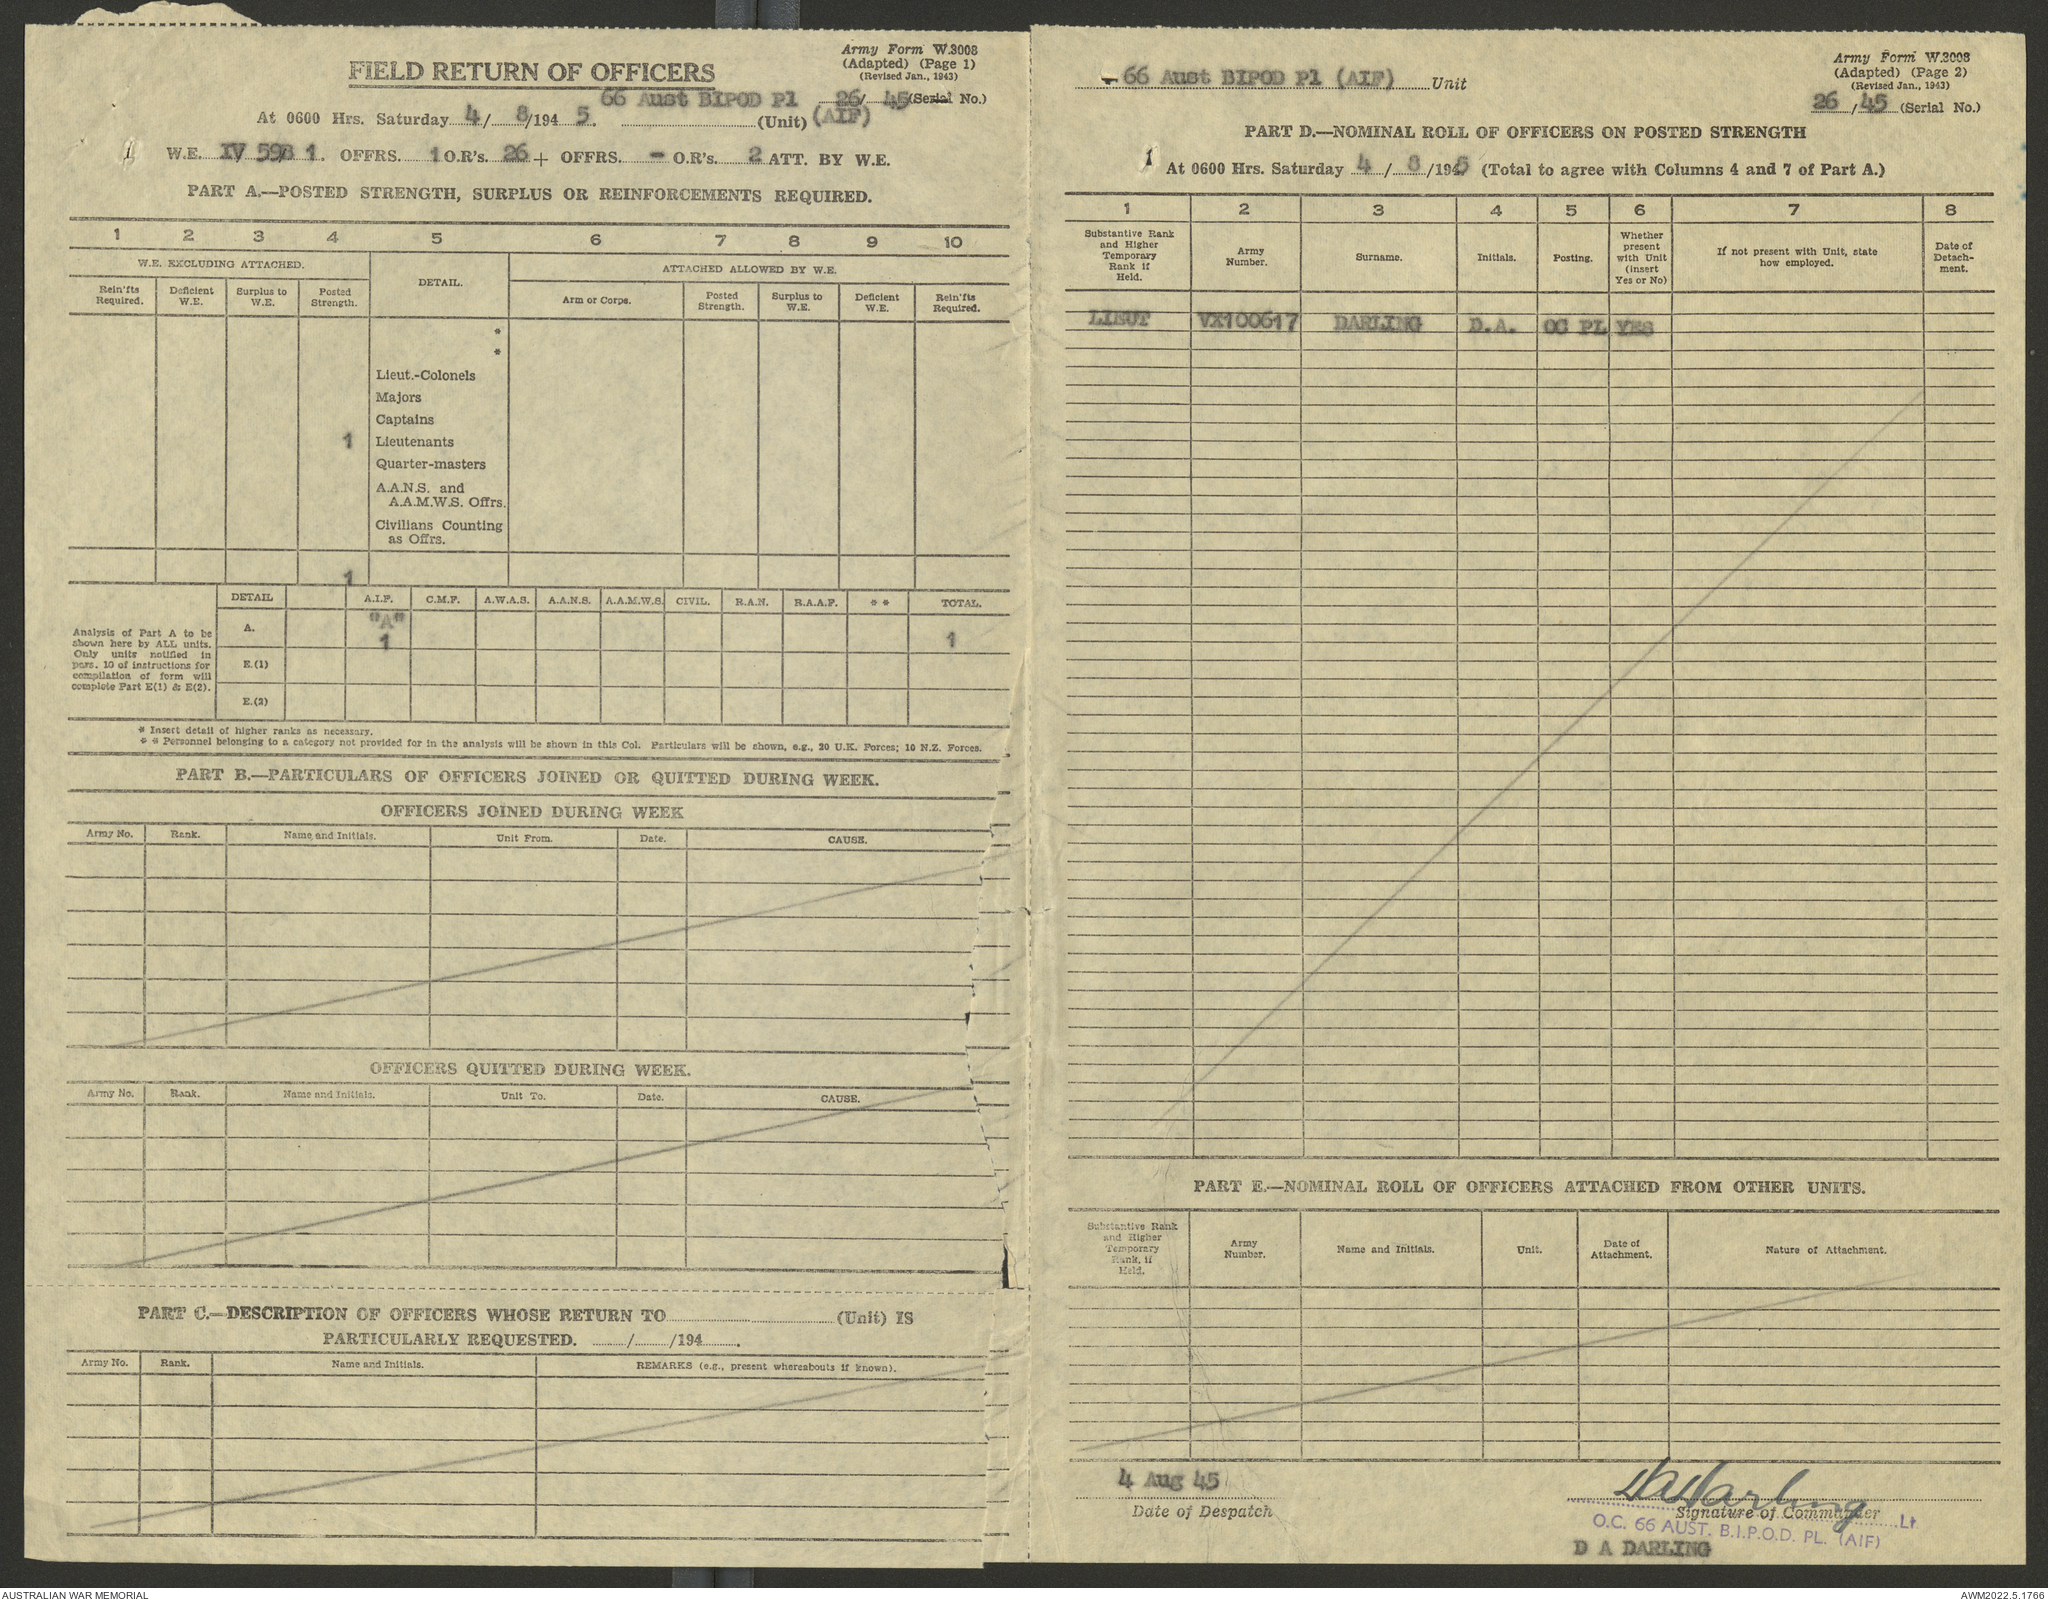 Army Form W.3008
(Adapted) (Page 1)
(Revised Jan., 1943)
FIELD RETURN OF OFFICERS
66 Aust BIPOD Pl 26/ 45 (Serial No.)
At 0600 Hrs. Saturday 4/ 8/194 5. (Unit) (AIF)
1 W.E. IV 59B 1. OFFRS. 1 O.R's. 26 + OFFRS. - O.R's. 2 ATT. BY W.E.
PART A.—POSTED STRENGTH, SURPLUS OR REINFORCEMENTS REQUIRED.
1 2 3 4 5 6 7 8 9 10
W.E. EXCLUDING ATTACHED.
DETAIL.
ATTACHED ALLOWED BY W.E.
Rein'fts Required.
Deficient W.E.
Surplus to W.E.
Posted Strength.
Arm or Corps.
Posted Strength.
Surplus to W.E.
Deficient W.E.
Rein'fts Required.
*
*
Lieut.-Colonels
Majors
Captains
1 Lieutenants
Quarter-masters
A.A.N.S. and
A.A.M.W.S. Offrs.
Civilians Counting
as Offrs.
1
DETAIL A.I.F. C.M.F. A.W.A.S. A.A.N.S. A.A.M.W.S. CIVIL. R.A.N. R.A.A.F. * * TOTAL.
Analysis of Part A to be
shown here by ALL units.
Only units notified in
para. 10 of instructions for
compilation of form will
complete Part E(1) & E(2).
A. "A" 1 1
E.(1)
E.(2)
* Insert detail of higher ranks as necessary.
* * Personnel belonging to a category not provided for in the analysis will be shown in this Col. Particulars will be shown, e.g., 20 U.K. Forces; 10 N.Z. Forces.
PART B.—PARTICULARS OF OFFICERS JOINED OR QUITTED DURING WEEK.
OFFICERS JOINED DURING WEEK
Army No. Rank. Name and Initials. Unit From. Date. CAUSE.
OFFICERS QUITTED DURING WEEK.
Army No. Rank. Name and Initials. Unit To. Date. CAUSE.
PART C.—DESCRIPTION OF OFFICERS WHOSE RETURN TO (Unit) IS
PARTICULARLY REQUESTED. / /194 .
Army No. Rank. Name and Initials. REMARKS (e.g., present whereabouts if known).
Army Form W.3008
(Adapted) (Page 2)
(Revised Jan., 1943)
- 66 Aust BIPOD Pl (AIF) Unit
26 / 45 (Serial No.)
PART D.—NOMINAL ROLL OF OFFICERS ON POSTED STRENGTH
1 At 0600 Hrs. Saturday 4 / 8 /1945 (Total to agree with Columns 4 and 7 of Part A.)
1 2 3 4 5 6 7 8
Substantive Rank and Higher Temporary Rank if Held.
Army Number.
Surname.
Initials.
Posting.
Whether present with Unit (insert Yes or No)
If not present with Unit, state how employed.
Date of Detach- ment.
LIEUT VX100617 DARLING D.A. OC PL YES
PART E.—NOMINAL ROLL OF OFFICERS ATTACHED FROM OTHER UNITS.
Substantive Rank and Higher Temporary Rank, if Held.
Army Number.
Name and Initials.
Unit.
Date of Attachment.
Nature of Attachment.
4 Aug 45
Date of Despatch
DADarling
Signature of Commander Lt
O.C. 66 AUST. B.I.P.O.D. PL. (AIF)
D A DARLING
AUSTRALIAN WAR MEMORIAL
AWM2022.5.1766